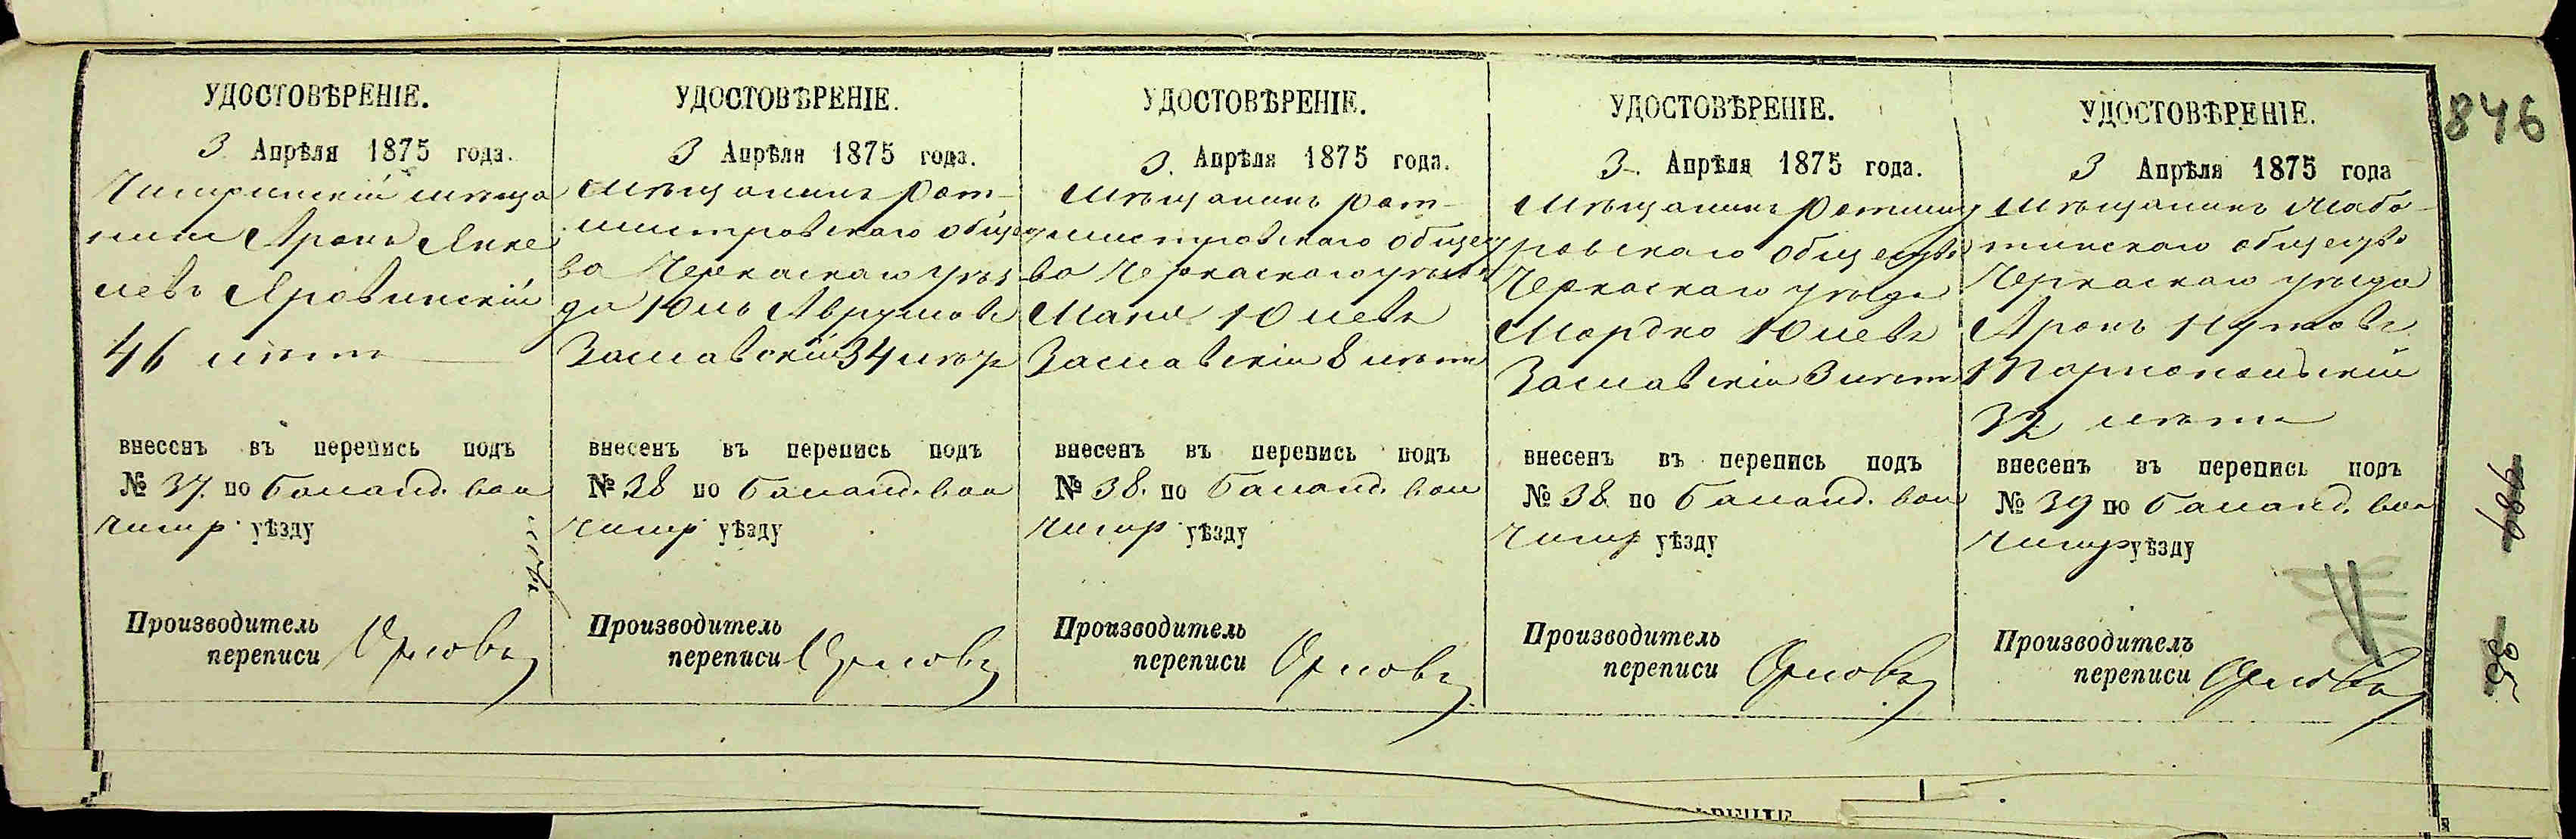 846
УДОСТОВѢРЕНІЕ.
3 Апрѣля 1875 года.
Чигиринскій мѣща
нинъ Аронъ Янке
левъ Яровинскій
46 лѣтъ
внесенъ въ перепись подъ
№ 37. по Баланд. вол
Чигир уѣзду
Производитель
переписи Орловъ
УДОСТОВѢРЕНІЕ.
3 Апрѣля 1875 года.
Мѣщанинъ Рот-
мистровскаго общес
ва Черкаскаго уѣз
да Юль Аврумовъ
Заславскій 34 лѣтъ
внесенъ въ перепись подъ
№ 38 по Баланд. вол
Чигир уѣзду
Производитель
переписи Орловъ
УДОСТОВѢРЕНІЕ.
3. Апрѣля 1875 года.
Мѣщанинъ Рот-
мистровскаго общест
ва Черкаскаго уѣзда
Юлевъ
Заславскій 8 лѣтъ
внесенъ въ перепись подъ
№ 38. по Баланд. вол
Чигир уѣзду
Производитель
переписи Орловъ
УДОСТОВѢРЕНІЕ.
3. Апрѣля 1875 года.
Мѣщанинъ Ротмист
ровскаго общества
Черкаскаго уѣзда
Мордко Юлевъ
Заславскій 3 лѣтъ
внесенъ въ перепись подъ
№ 38 по Баланд. вол
Чигир уѣзду
Производитель
переписи Орловъ
УДОСТОВѢРЕНІЕ.
3 Апрѣля 1875 года
Мѣщанинъ Жабо-
тинскаго общества
Черкаскаго уѣзда
Аронъ
Тарнопольскій
32 лѣтъ
внесенъ въ перепись подъ
№ 39 по Баланд. вол
Чигир уѣзду
Производитель
переписи Орловъ